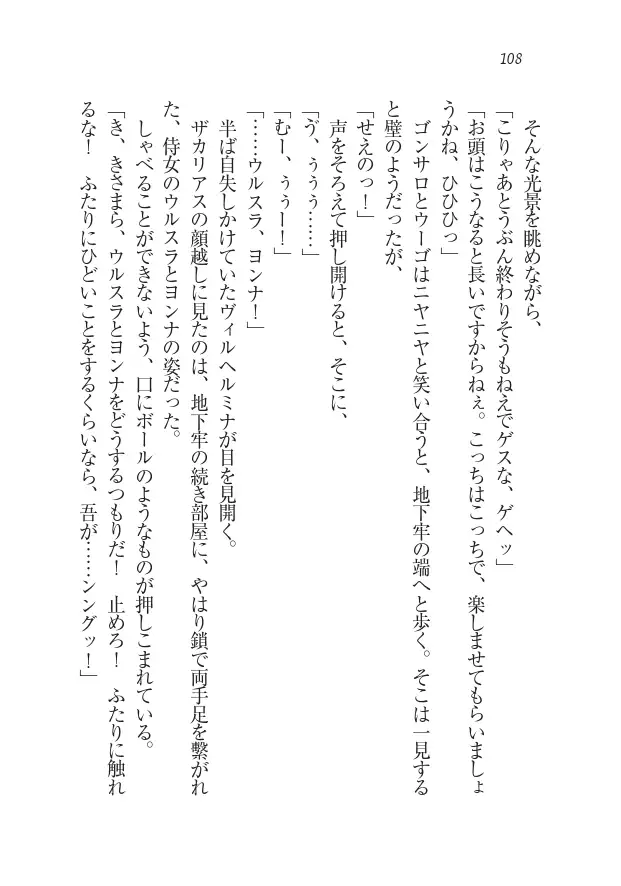 108
そんな光景を眺めながら、
「こりゃあとうぶん終わりそうもねえでゲスな、ゲヘッ」
「お頭はこうなると長いですからねぇ。こっちはこっちで、楽しませてもらいましょ
うかね、ヒヒヒっ」
ゴンサロとウーゴはニヤニヤと笑い合うと、地下牢の端へと歩く。そこは一見する
と壁のようだったが、
「せえのっ！」
声をそろえて押し開けると、そこに、
「ゔ、ぅぅぅ……」
「むー、ぅぅー！」
「……ウルスラ、ヨンナ！」
半ば自失しかけていたヴィルヘルミナが目を見開く。
ザカリアスの顔越しに見たのは、地下牢の続き部屋に、やはり鎖で両手足を繋がれ
た、侍女のウルスラとヨンナの姿だった。
しゃべることができないよう、口にボールのようなものが押しこまれている。
「き、きさまら、ウルスラとヨンナをどうするつもりだ！　止めろ！　ふたりに触れ
るな！　ふたりにひどいことをするくらいなら、吾が……ンングッ！」